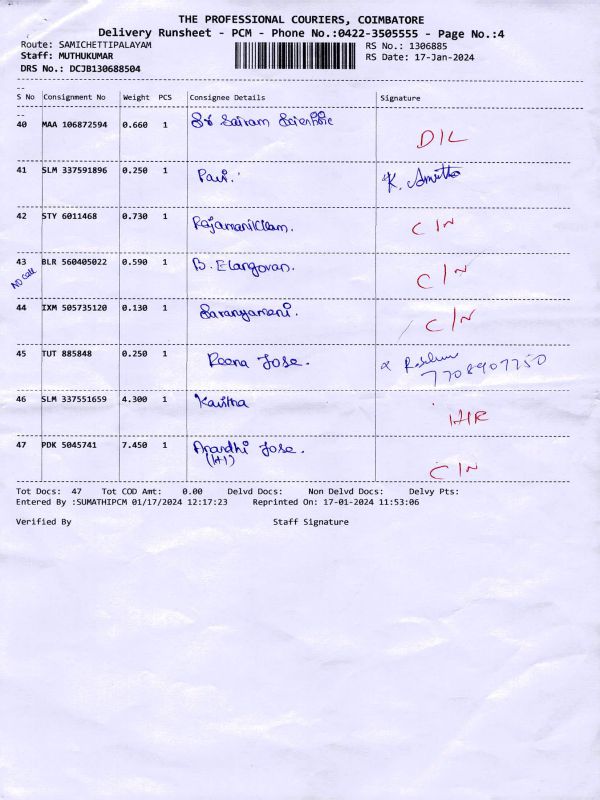 THE PROFESSIONAL COURIERS, COIMBATORE
Delivery Runsheet - PCM - Phone No.:0422-3505555 - Page No.:4
Route: SAMICHETTIPALAYAM RS No.: 1306885
Staff: MUTHUKUMAR RS Date: 17-Jan-2024
DRS No.: DCJB130688504
S No Consignment No Weight PCS Consignee Details Signature
40 MAA 106872594 0.660 1 Sri Sairam Scientific D/L
41 SLM 337591896 0.250 1 Pavi. K. Amutha
42 STY 6011468 0.730 1 Rajamanikkam. C/N
43 BLR 560405022 0.590 1 B. Elangovan. C/N
NO Call
44 IXM 505735120 0.130 1 Saranyamani. C/N
45 TUT 885848 0.250 1 Reena Jose. 7708907250
46 SLM 337551659 4.300 1 Kavitha
47 PDK 5045741 7.450 1 Anandhi Jose. C/N
(H1)
Tot Docs: 47 Tot COD Amt: 0.00 Delvd Docs: Non Delvd Docs: Delvy Pts:
Entered By :SUMATHIPCM 01/17/2024 12:17:23 Reprinted On: 17-01-2024 11:53:06
Verified By Staff Signature